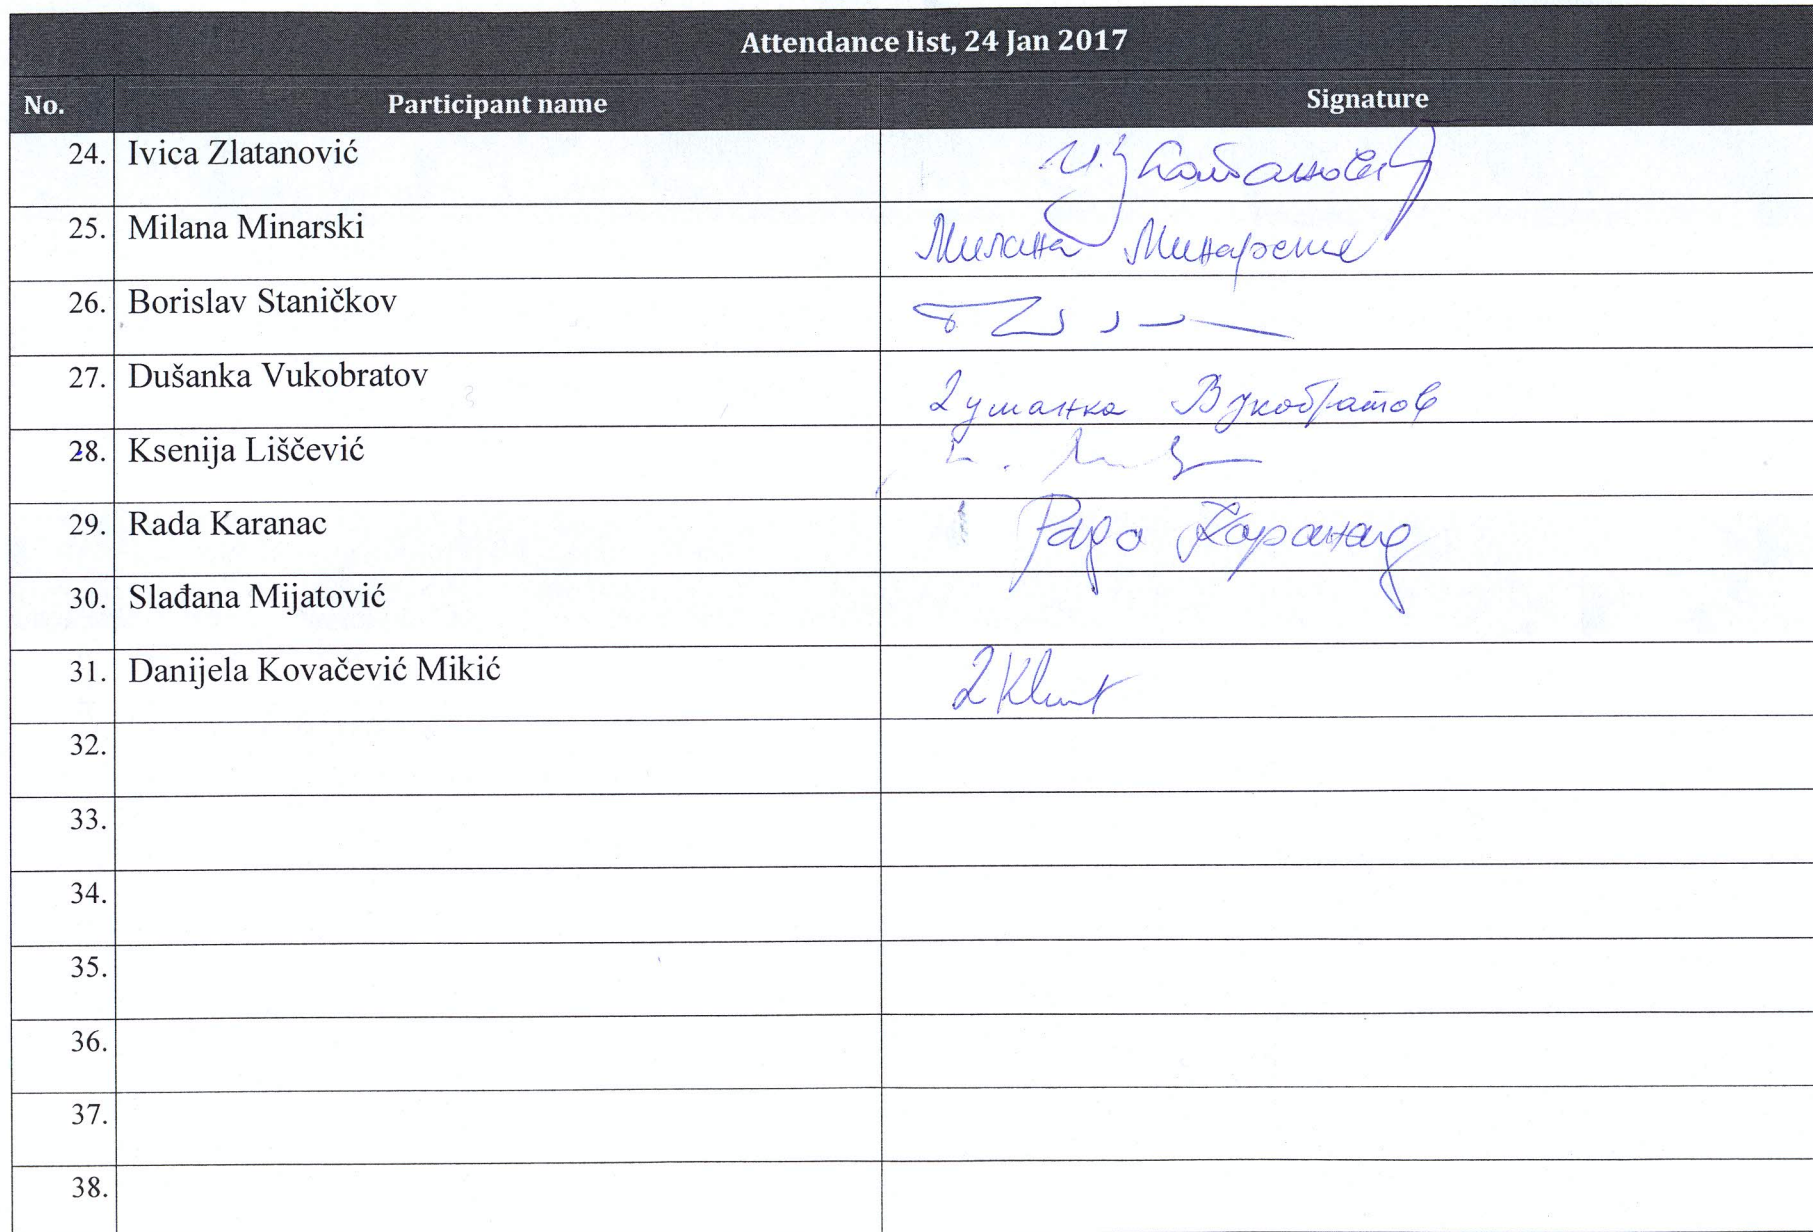 Attendance list, 24 Jan 2017
No. Participant name Signature
24. Ivica Zlatanović И. Златановић
25. Milana Minarski Милана Минарски
26. Borislav Staničkov
27. Dušanka Vukobratov Душанка Вукобратов
28. Ksenija Liščević
29. Rada Karanac Рада Каранац
30. Slađana Mijatović
31. Danijela Kovačević Mikić
32.
33.
34.
35.
36.
37.
38.